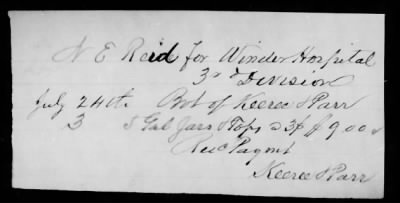 N E Reid for Winder Hospital
3rd Division
July 24th. Bot of Keeree & Parr
3 5 Gal Jars & Tops @ 3$ $9.00
Recd Paymt
Keeree & Parr